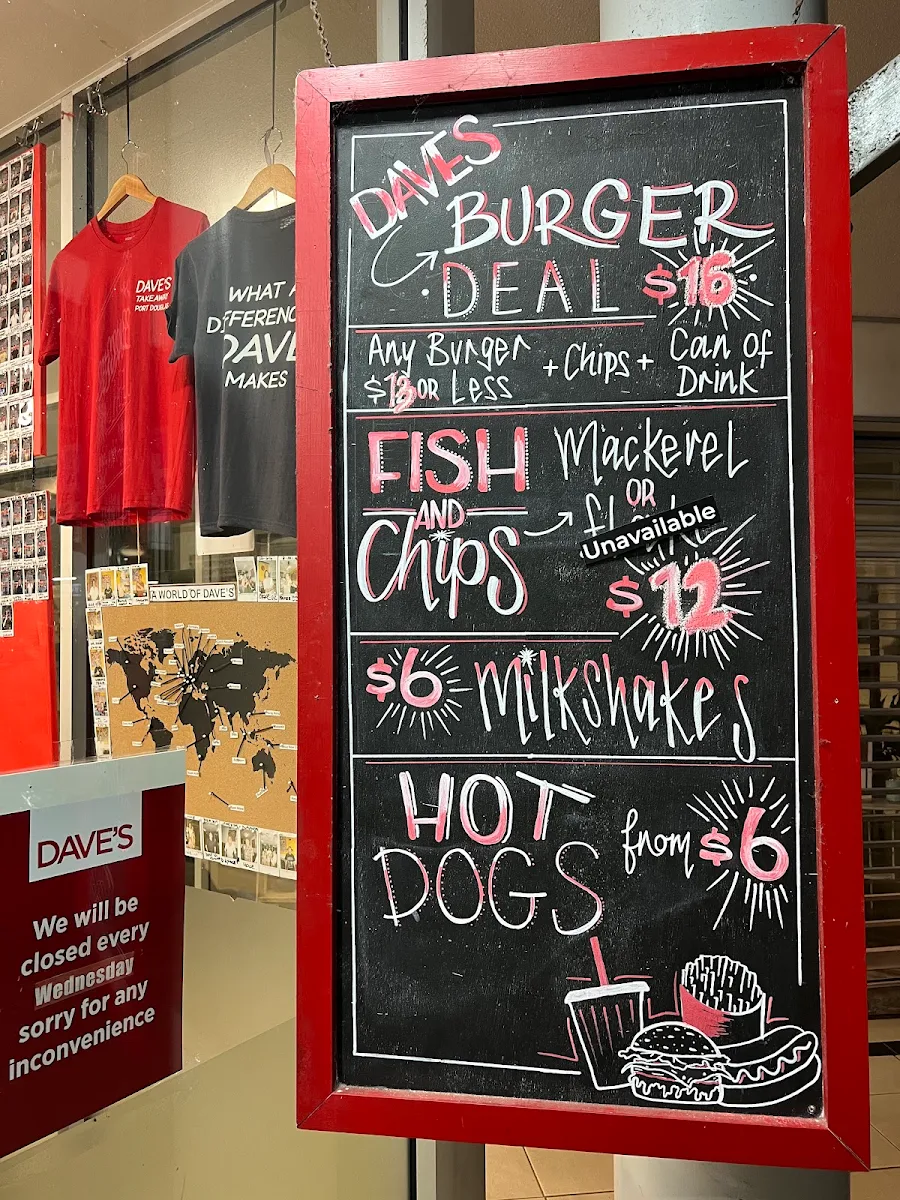 DAVES
BURGER
DEAL $16
Any Burger
$13 OR Less
+ Chips +
Can of
Drink
FISH
AND
Chips
Mackerel
OR
Unavailable
$12
$6 Milkshakes
HOT
DOGS
from $6
DAVE'S
TAKEAWAY
PORT DOUGLAS
WHAT A
DIFFERENC
DAVE
MAKES
A WORLD OF DAVE'S
DAVE'S
We will be
closed every
Wednesday
sorry for any
inconvenience